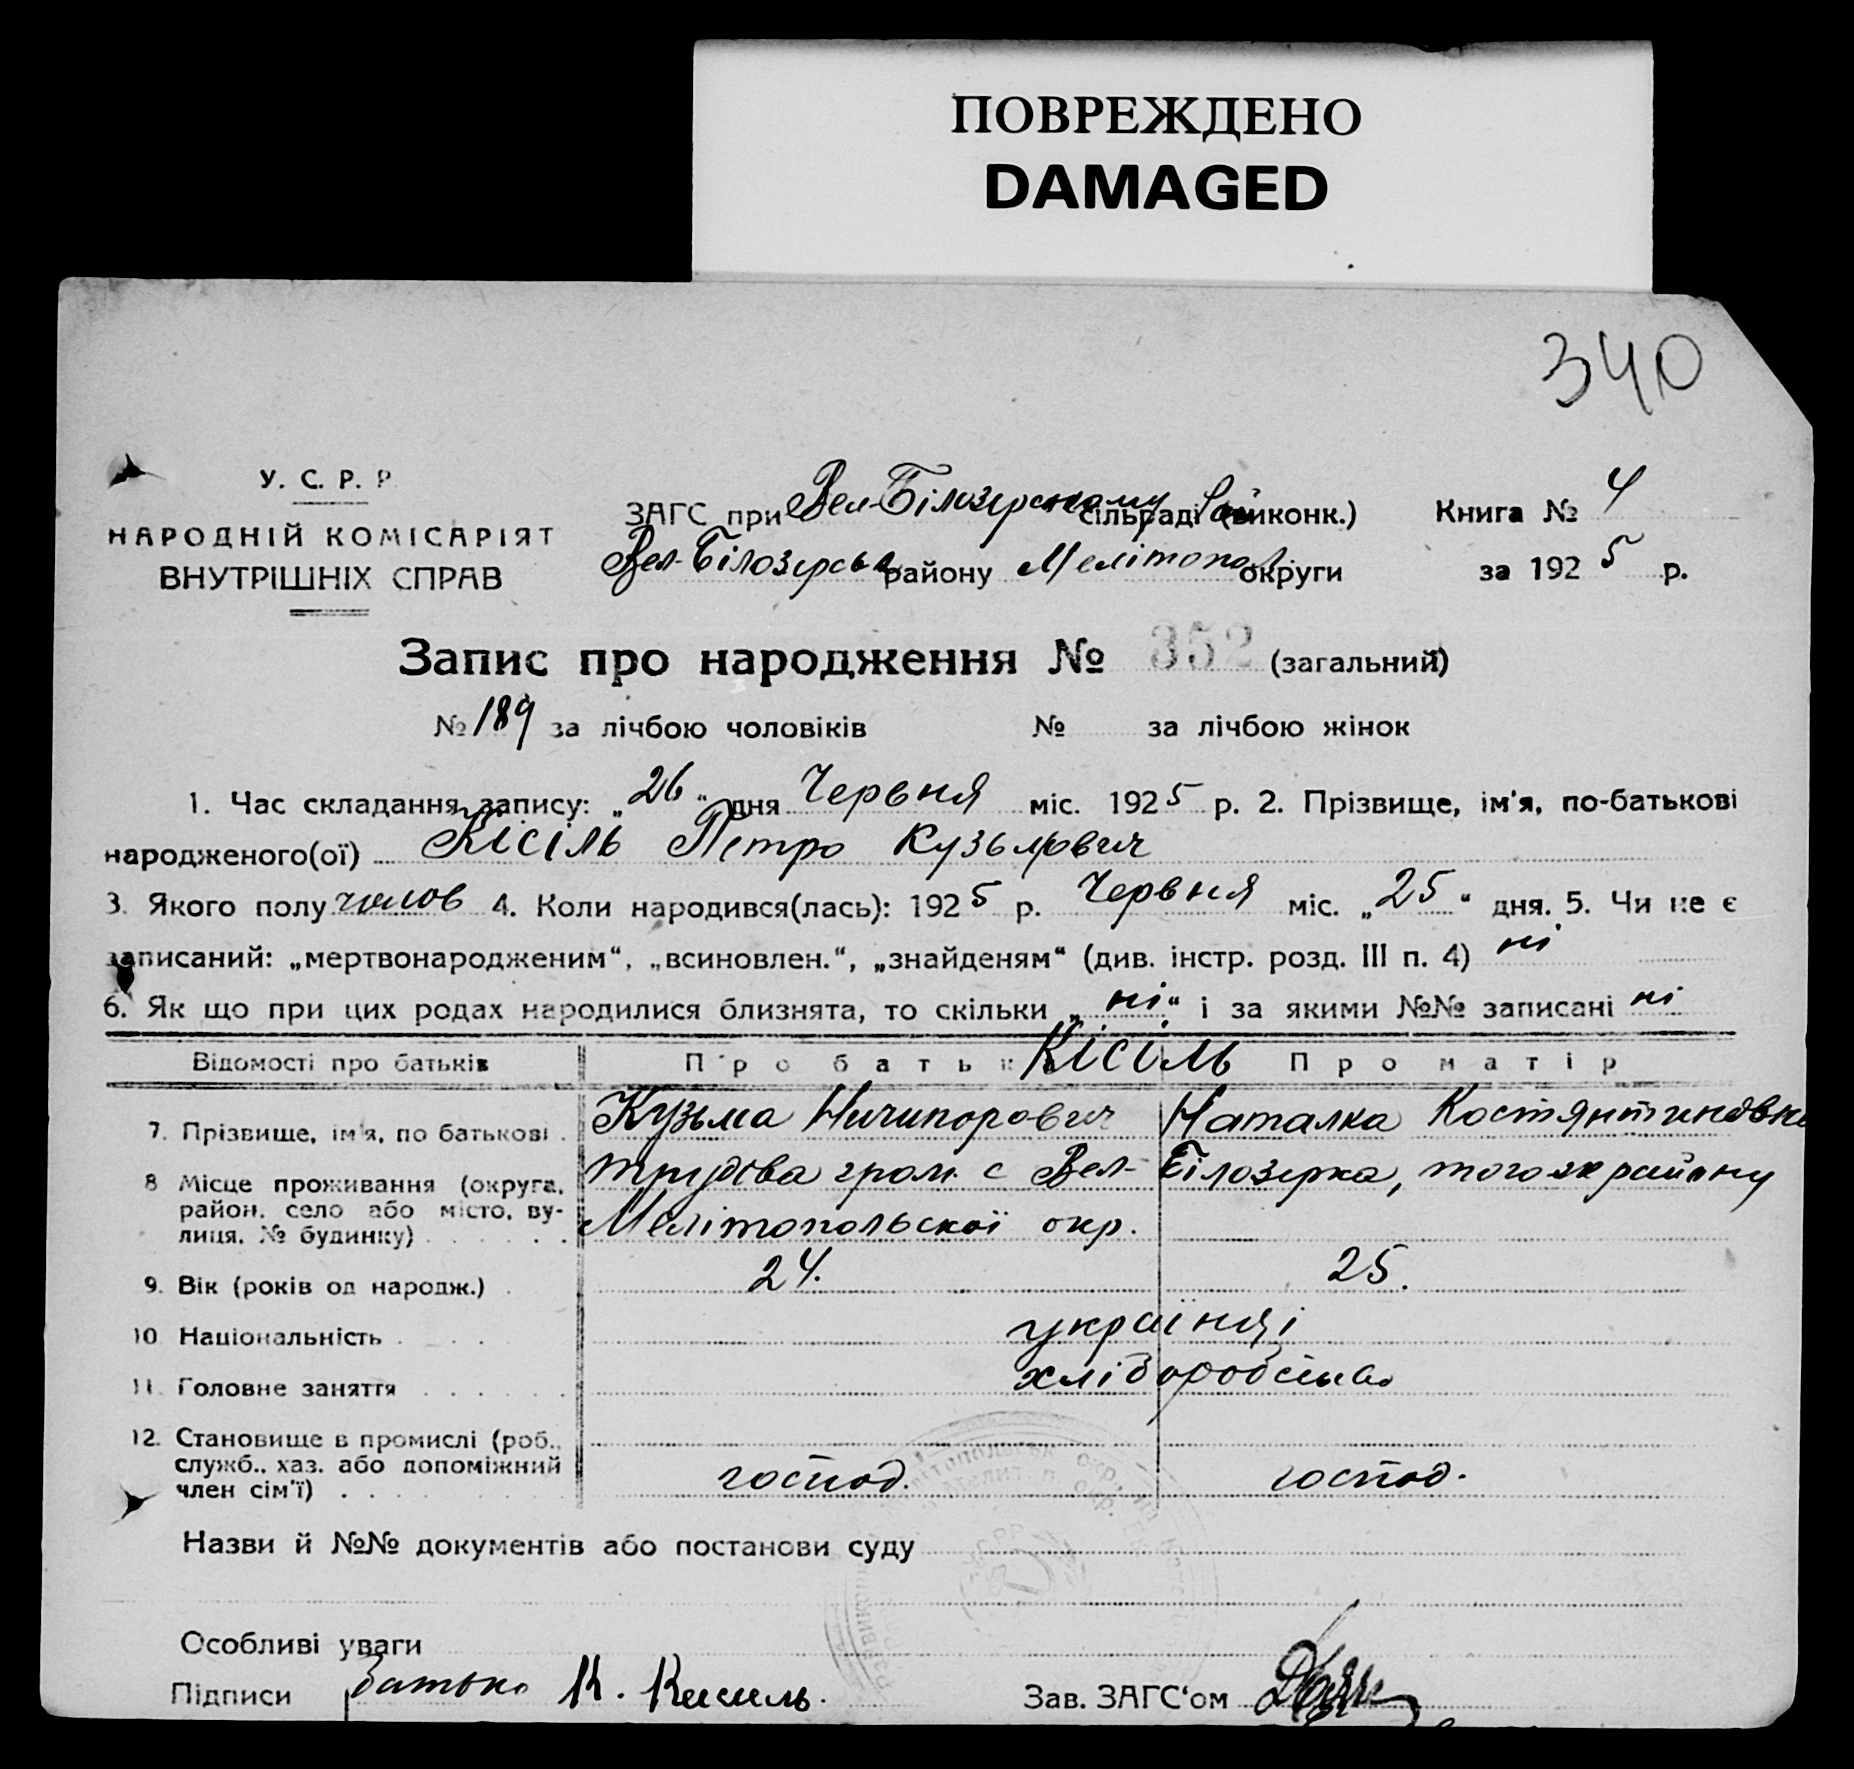 ПОВРЕЖДЕНО
DAMAGED
340
У. С. Р. Р
НАРОДНІЙ КОМІСАРІЯТ
ВНУТРІШНІХ СПРАВ
ЗАГС при Вел-Білозерському сільраді (виконк.) Книга № 4
Вел-Білозерськ району Мелітопол. округи за 1925 р.
Запис про народження № 352 (загальний)
№ 189 за лічбою чоловіків № за лічбою жінок
1. Час складання запису: „26" дня Червня міс. 1925 р. 2. Прізвище, ім'я, по-батькові
народженого(ої) Кісіль Петро Кузьмович
3. Якого полу чолов 4. Коли народився(лась): 1925 р. Червня міс. „25" дня. 5. Чи не є
записаний: „мертвонародженим", „всиновлен.", „знайденям" (див. інстр. розд. III п. 4) ні
6. Як що при цих родах народилися близнята, то скільки „ні" і за якими №№ записані ні
Відомості про батьків Про батьк Кісіль Про матір
7. Прізвище, ім'я, по батькові. Кузьма Ничипорович Наталка Костянтиновна
8 Місце проживання (округа, район, село або місто, вулиця, № будинку) гром. с Вел-Білозерка, того ж району
Мелітопольської окр.
9. Вік (років од народж.) 24. 25.
10 Національність українці
11. Головне заняття хліборобсtво
12. Становище в промислі (роб.,
служб., хаз. або допоміжний
член сім'ї) господ. господ.
Назви й №№ документів або постанови суду
Особливі уваги
Підписи батько К. Кисиль. Зав. ЗАГС'ом